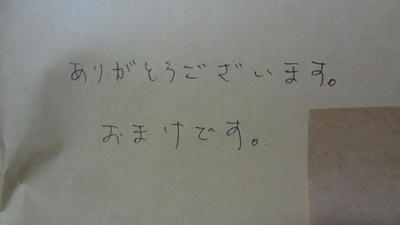 ありがとうございます。
おまけです。